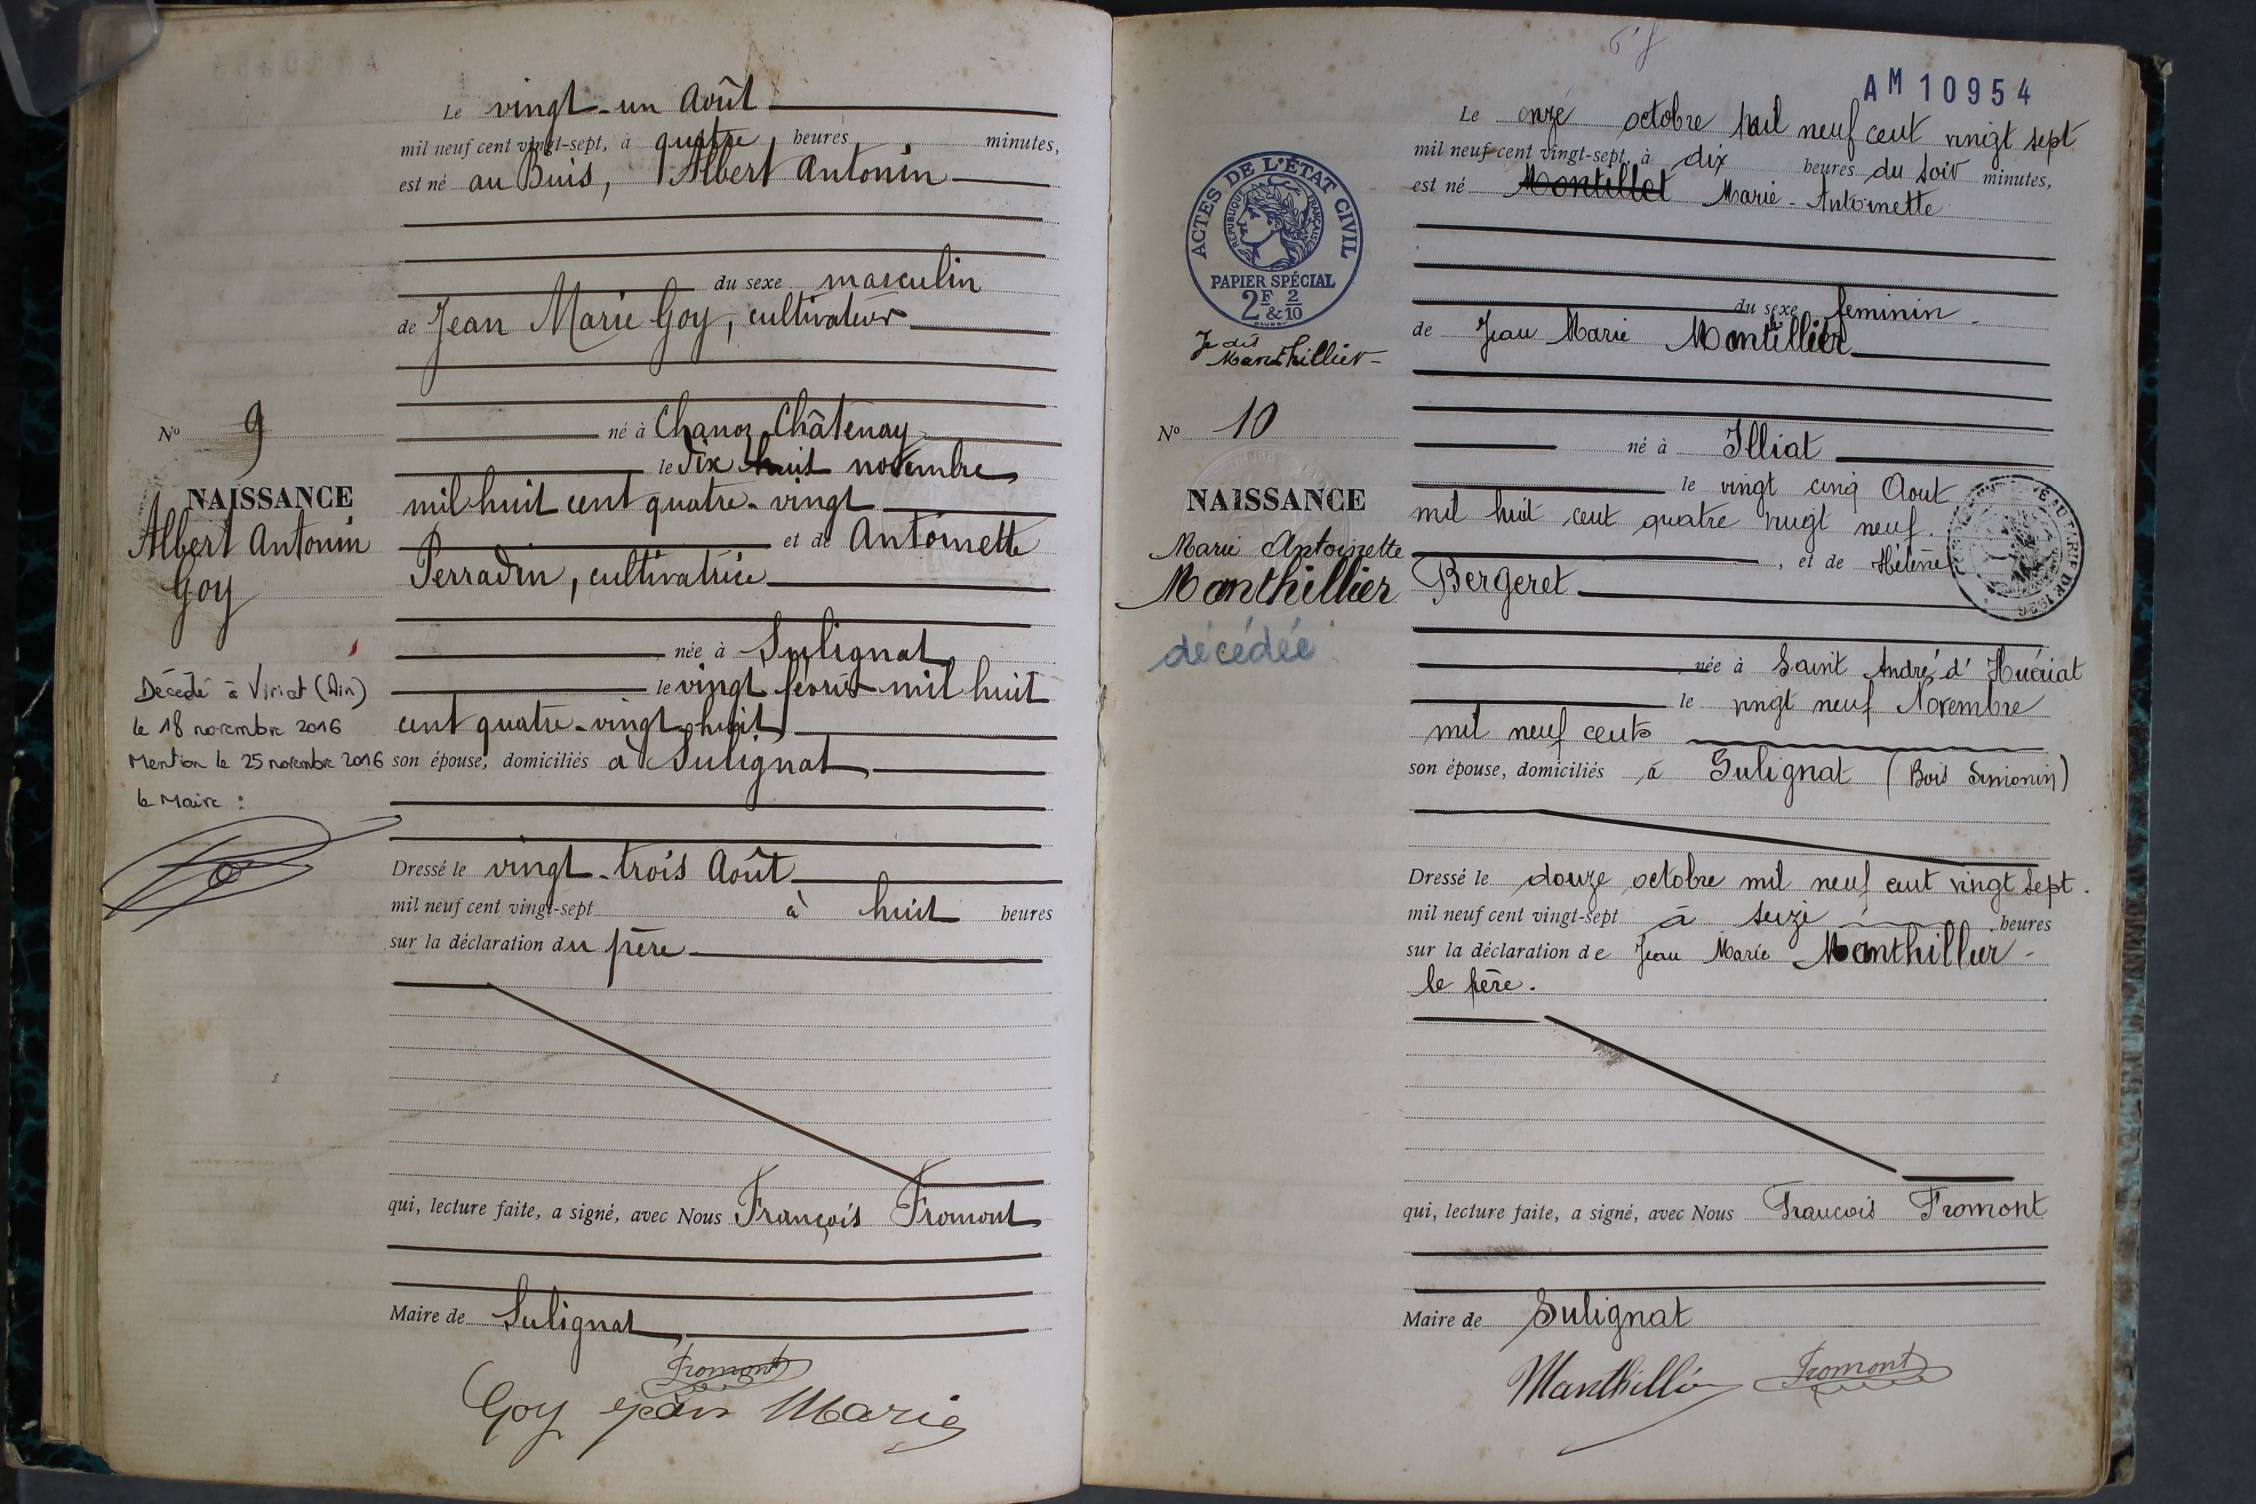 Le vingt-un Août
mil neuf cent vingt-sept, à quatre heures minutes,
est né au Buis, Albert Antonin
du sexe masculin
de Jean Marie Goy, cultivateur
né à Chanoz-Châtenay
le Dix huit novembre
mil huit cent quatre-vingt
et de Antoinette
Perradin, cultivatrice
née à Sulignat
le vingt février mil huit
cent quatre-vingt-huit
son épouse, domiciliés à Sulignat
Dressé le vingt-trois Août
mil neuf cent vingt-sept à huit heures
sur la déclaration du père
qui, lecture faite, a signé, avec Nous François Fromont
Maire de Sulignat
Fromont
Goy Jean Marie
No 9
NAISSANCE
Albert Antonin
Goy
Décédé à Viriat (Ain)
le 18 novembre 2016
Mention le 25 novembre 2016
le Maire :
AM 10954
Le onze octobre mil neuf cent vingt sept
mil neuf cent vingt-sept, à dix heures du soir minutes,
est né Montillet Marie-Antoinette
du sexe feminin
de Jean Marie Manthillier
né à Illiat
le vingt cinq Aout
mil huit cent quatre vingt neuf.
, et de Hélène
Bergeret
née à Saint André d'Huiriat
le vingt neuf Novembre
mil neuf cents
son épouse, domiciliés à Sulignat (Bois Simonin)
Dressé le douze octobre mil neuf cent vingt sept.
mil neuf cent vingt-sept à seize heures
sur la déclaration de Jean Marie Manthillier
le père.
qui, lecture faite, a signé, avec Nous Francois Fromont
Maire de Sulignat
Manthillier Fromont
ACTES DE L'ÉTAT CIVIL
RÉPUBLIQUE FRANÇAISE
PAPIER SPÉCIAL
2F & 2/10
Je dis
Manthillier
No 10
NAISSANCE
Marie Antoinette
Manthillier
décédée